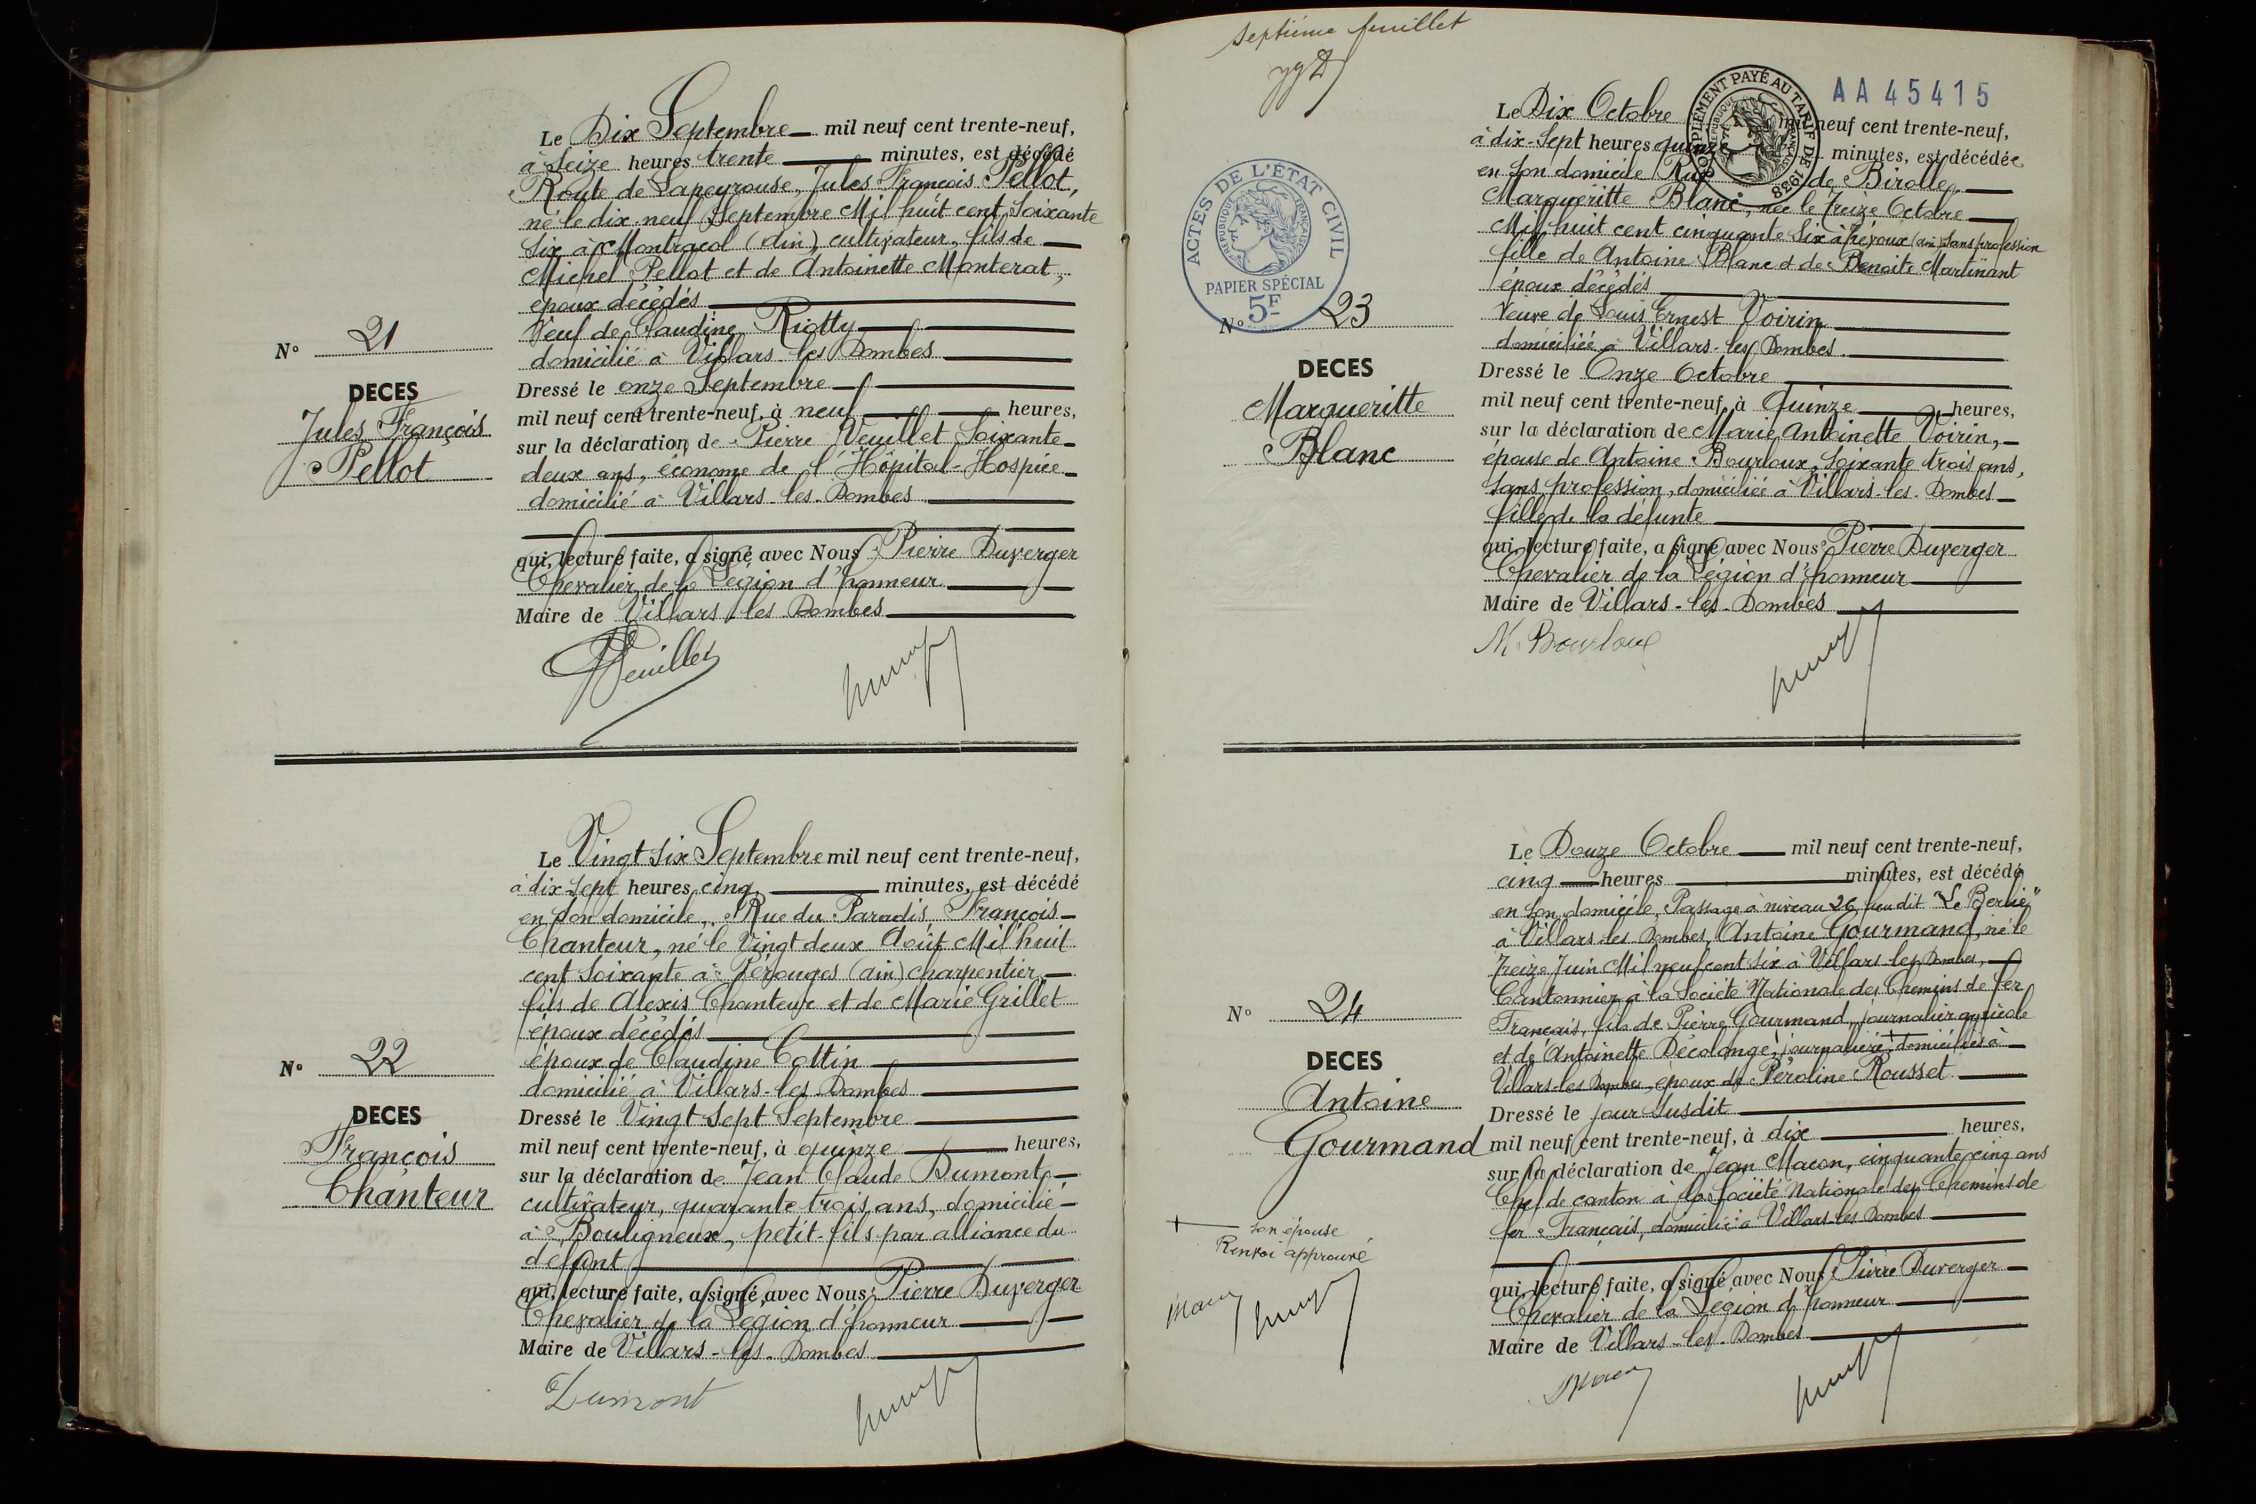 Le Dix Septembre mil neuf cent trente-neuf,
à Seize heures trente minutes, est décédé
Route de Lapeyrouse, Jules François Pellot,
né le dix neuf Septembre Mil huit cent Soixante
Six à Montracol (Ain), cultivateur, fils de
Michel Pellot et de Antoinette Monterat,
époux décédés
Veuf de Claudine Riotty
domicilié à Villars les Dombes
N° 21
DECES
Jules François
Pellot
Dressé le onze Septembre
mil neuf cent trente-neuf, à neuf heures,
sur la déclaration de Pierre Veuillet Soixante
deux ans, économe de l'Hôpital-Hospice
domicilié à Villars les Dombes
qui, lecture faite, a signé avec Nous Pierre Duverger
Chevalier de la Légion d'honneur
Maire de Villars les Dombes
Veuillet
Le Vingt Six Septembre mil neuf cent trente-neuf,
à dix Sept heures cinq minutes, est décédé
en Son domicile, Rue du Paradis, François
Chanteur, né le Vingt deux Août Mil huit
cent Soixante à Pérouges (Ain) charpentier,
fils de Alexis Chanteur et de Marie Grillet
époux décédés
époux de Claudine Cottin
domicilié à Villars-les Dombes
N° 22
DECES
François
Chanteur
Dressé le Vingt Sept Septembre
mil neuf cent trente-neuf, à quinze heures,
sur la déclaration de Jean Claude Dumont,
cultivateur, quarante trois ans, domicilié
à Bouligneux, petit-fils par alliance du
défunt
qui, lecture faite, a signé avec Nous Pierre Duverger
Chevalier de la Légion d'honneur
Maire de Villars-les-Dombes
Dumont
Septième feuillet
AA 45415
COMPLEMENT PAYÉ AU TARIF DE 1938
REPUBLIQUE FRANÇAISE
ACTES DE L'ÉTAT CIVIL
REPUBLIQUE FRANÇAISE
PAPIER SPÉCIAL
5F
Le Dix Octobre mil neuf cent trente-neuf,
à dix-Sept heures quinze minutes, est décédée
en Son domicile Rue de Birolle,
Margueritte Blanc, née le Treize Octobre
Mil huit cent cinquante Six à Trévoux (Ain) Sans profession
fille de Antoine Blanc et de Benoite Martinant
époux décédés
Veuve de Louis Ernest Voirin
domiciliée à Villars-les Dombes
N° 23
DECES
Margueritte
Blanc
Dressé le Onze Octobre
mil neuf cent trente-neuf, à Quinze heures,
sur la déclaration de Marie Antoinette Voirin,
épouse de Antoine Bourloux, Soixante trois ans,
Sans profession, domiciliée à Villars-les-Dombes
fille de la défunte
qui, lecture faite, a signé avec Nous Pierre Duverger
Chevalier de la Légion d'honneur
Maire de Villars-les-Dombes
M. Bourloux
Le Douze Octobre mil neuf cent trente-neuf,
cinq heures minutes, est décédé
en Son domicile, Passage à niveau 26, lieu dit "Le Berlie"
à Villars les Dombes, Antoine Gourmand, né le
Treize Juin Mil neuf cent Six à Villars-les Dombes,
Cantonnier à la Société Nationale des Chemins de fer
Français, fils de Pierre Gourmand, journalier agricole
et de Antoinette Décolange, journalière, domiciliés à
Villars-les Dombes, époux de Péroline Rousset
N° 24
DECES
Antoine
Gourmand
Dressé le jour Susdit
mil neuf cent trente-neuf, à dix heures,
sur la déclaration de Jean Macon, cinquante cinq ans
Chef de canton à la Société Nationale des Chemins de
fer Français, domicilié à Villars-les Dombes
Son épouse
Renvoi approuvé
Macon
qui, lecture faite, a signé avec Nous Pierre Duverger
Chevalier de la Légion d'honneur
Maire de Villars-les-Dombes
Macon